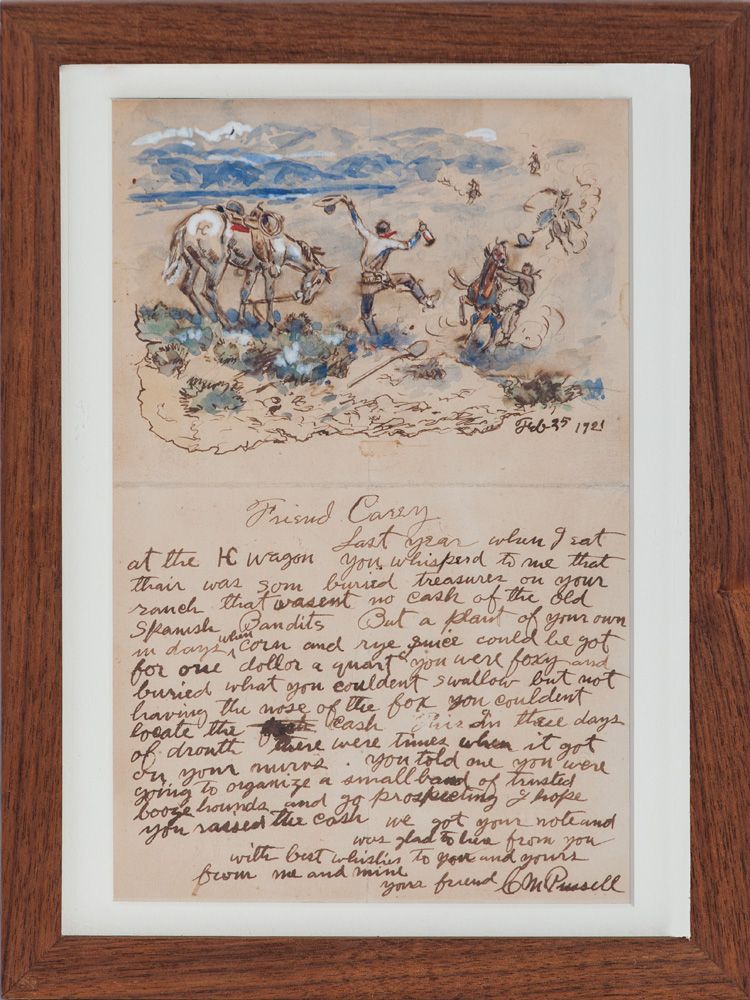 HC
Feb 25 1921
Friend Carey
Last year when I eat
at the HC wagon you whisperd to me that
thair was som buried treasures on your
ranch that wasent no cash of the old
Spanish Bandits But a plant of your own
in days when corn and rye juice could be got
for one dollor a quart you were foxy and
buried what you couldent swallow but not
having the nose of the fox you couldent
locate the cash This in these days
of drouth there were times when it got
on your nurvs. you told me you were
going to organize a small band of trusted
booze hounds and go prospecting I hope
you raised the cash we got your note and
was glad to here from you
with best whishes to you and yours
from me and mine
your friend CM Russell